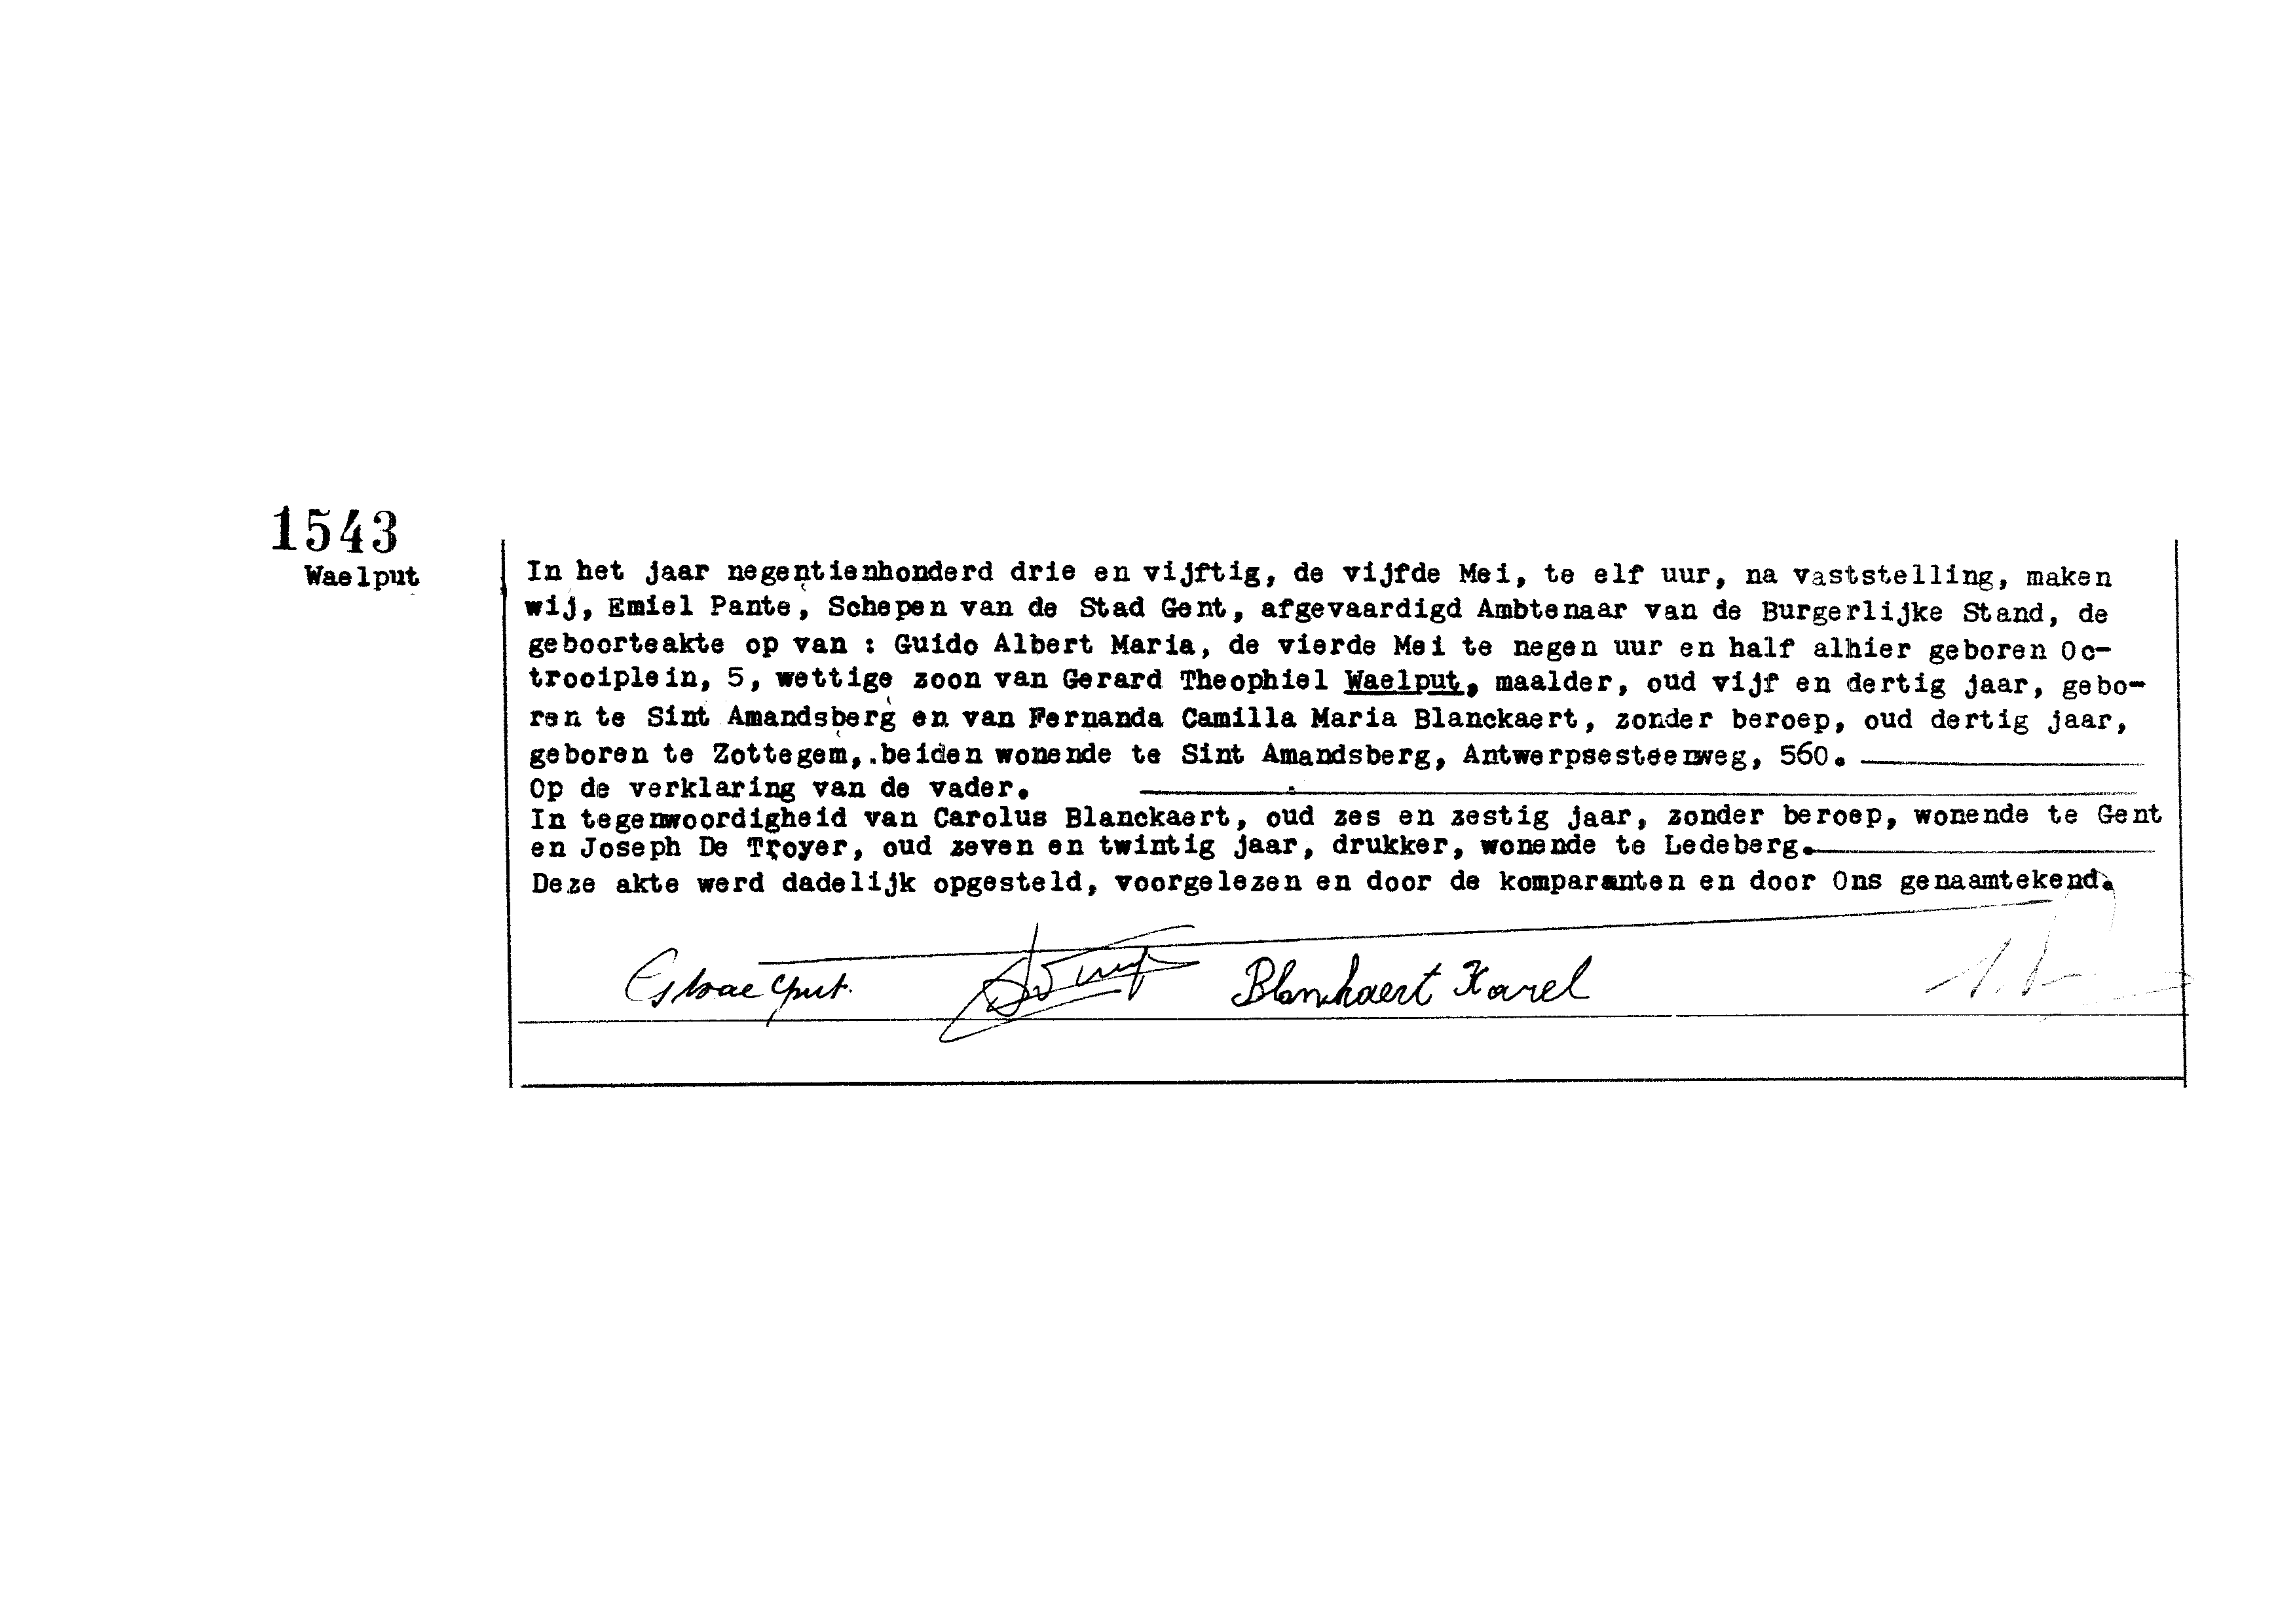 1543
Waelput
In het jaar negentienhonderd drie en vijftig, de vijfde Mei, te elf uur, na vaststelling, maken
wij, Emiel Pante, Schepen van de Stad Gent, afgevaardigd Ambtenaar van de Burgerlijke Stand, de
geboorteakte op van : Guido Albert Maria, de vierde Mei te negen uur en half alhier geboren Oc-
trooiplein, 5, wettige zoon van Gerard Theophiel Waelput, maalder, oud vijf en dertig jaar, gebo-
ren te Sint Amandsberg en van Fernanda Camilla Maria Blanckaert, zonder beroep, oud dertig jaar,
geboren te Zottegem, beiden wonende te Sint Amandsberg, Antwerpsesteenweg, 560.
Op de verklaring van de vader.
In tegenwoordigheid van Carolus Blanckaert, oud zes en zestig jaar, zonder beroep, wonende te Gent
en Joseph De Troyer, oud zeven en twintig jaar, drukker, wonende te Ledeberg.
Deze akte werd dadelijk opgesteld, voorgelezen en door de komparanten en door Ons genaamtekend.
GWaelput. Blankaert Karel